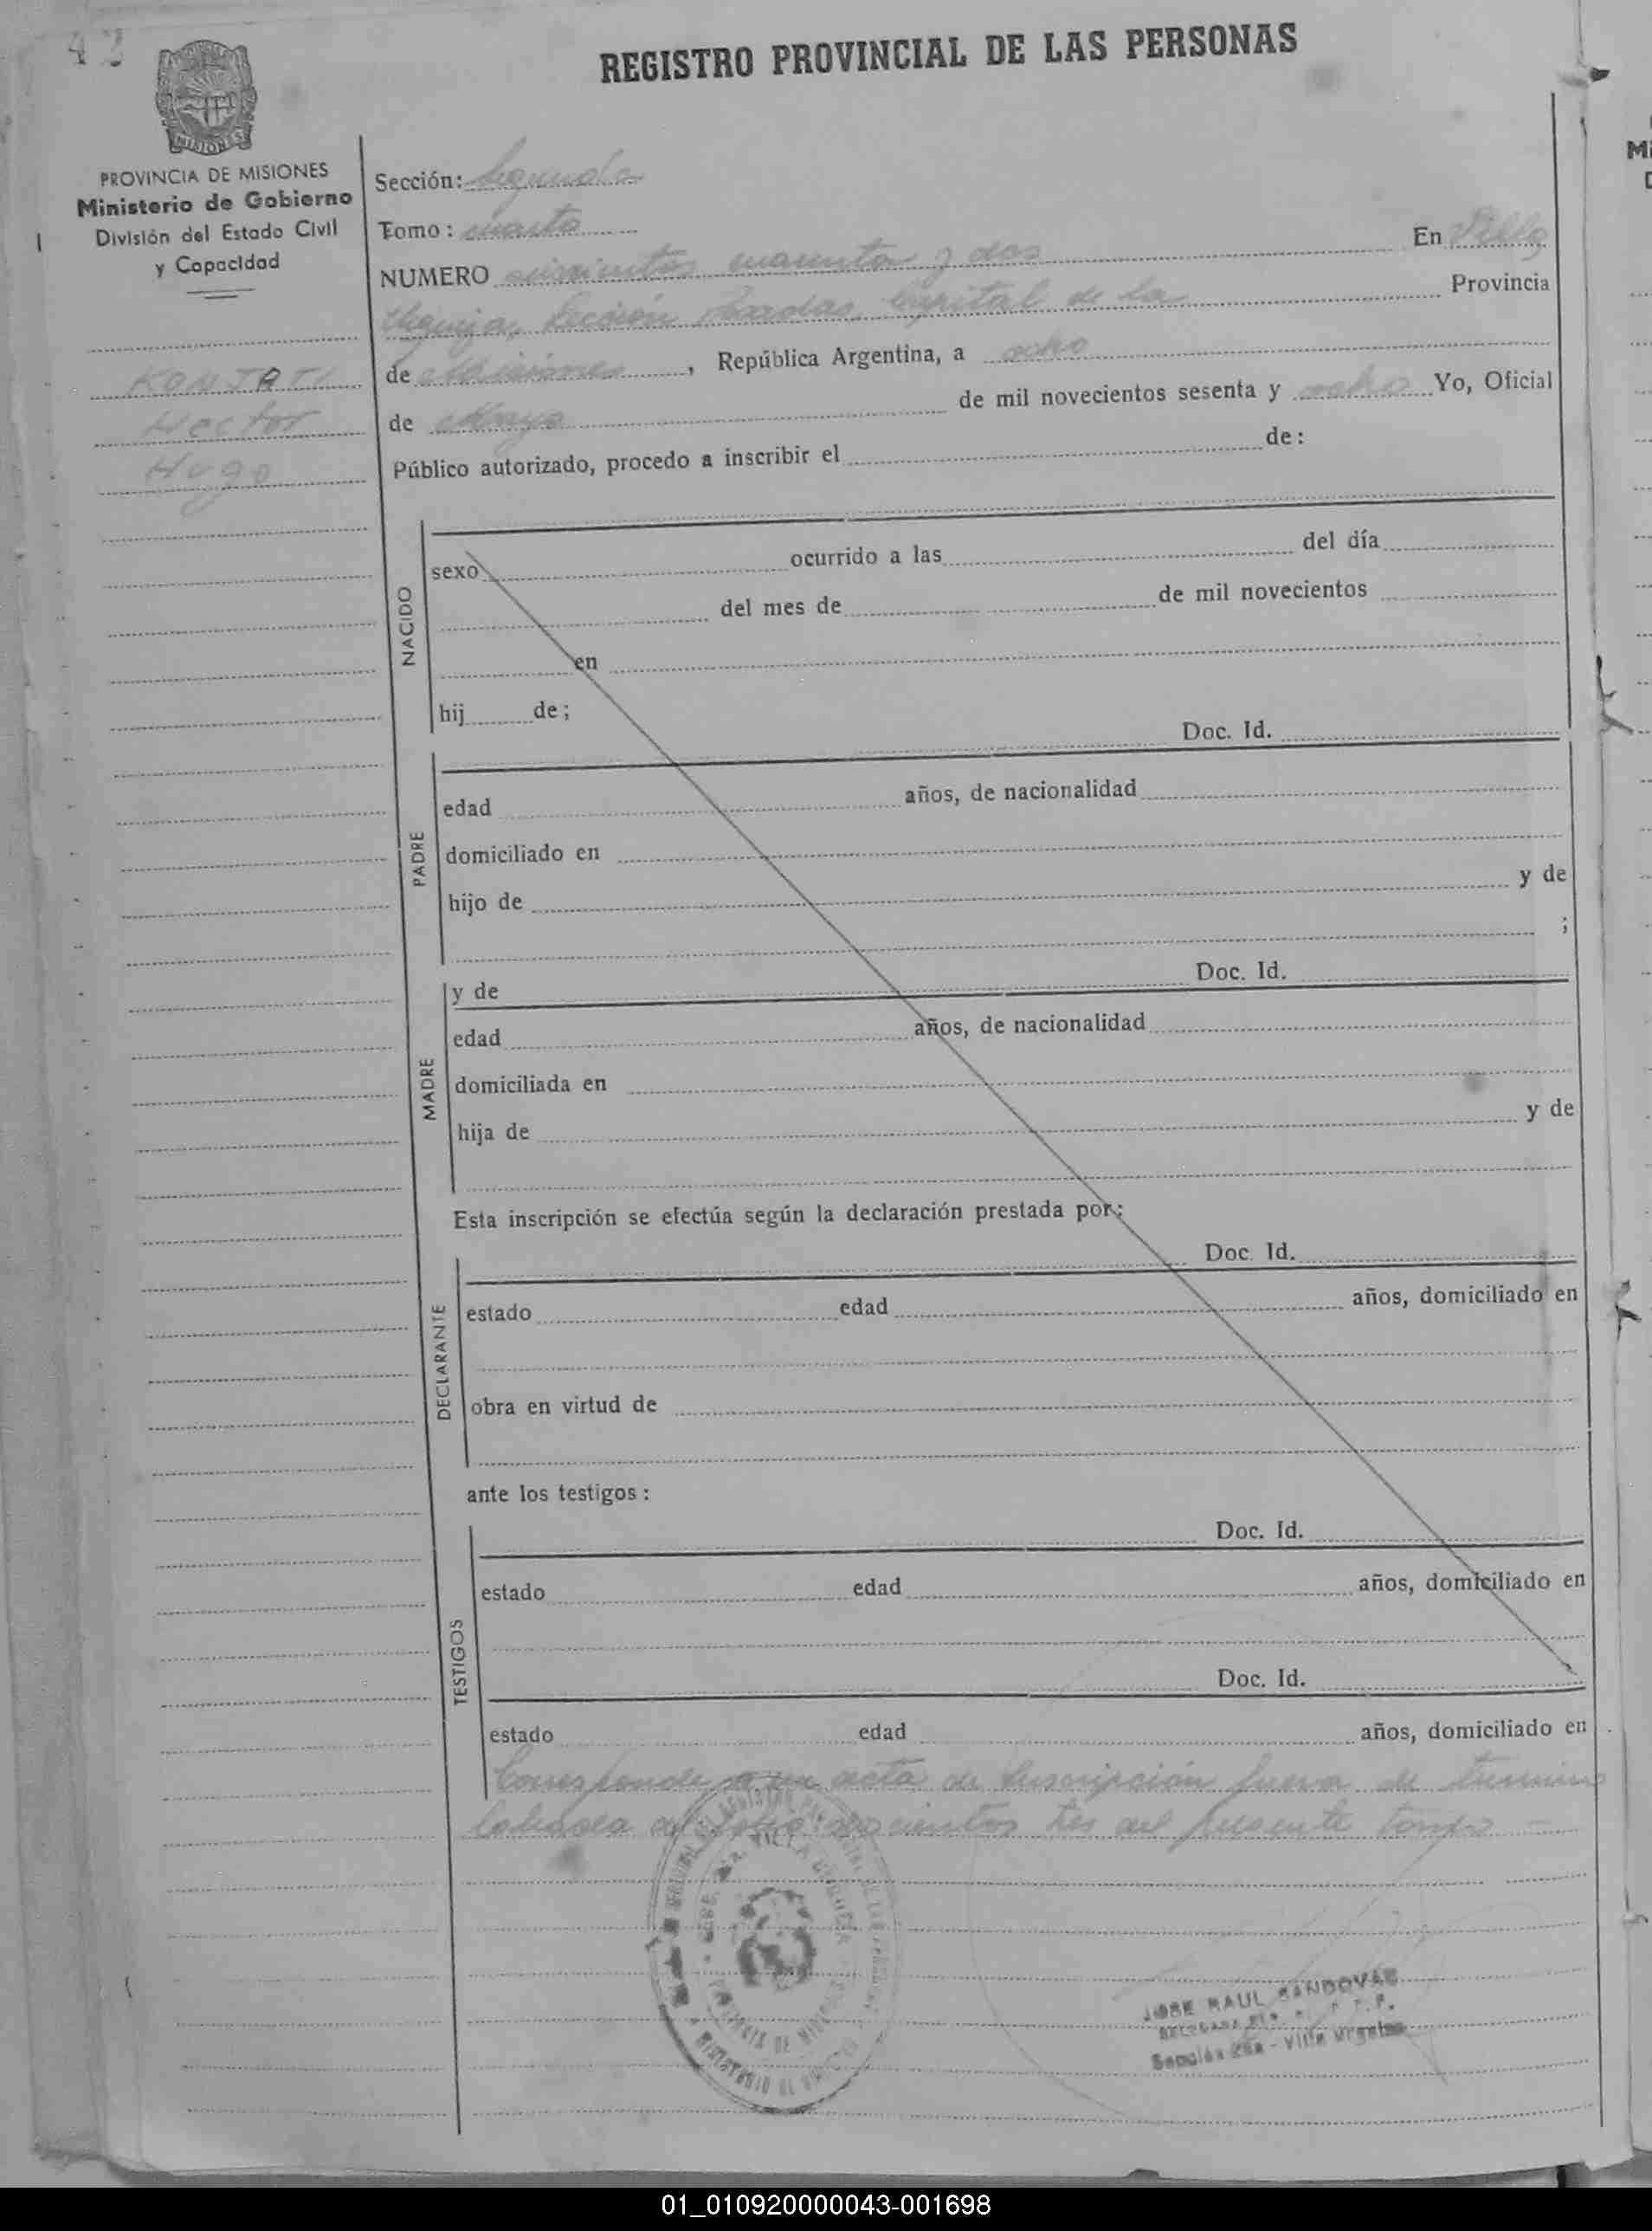 42
REGISTRO PROVINCIAL DE LAS PERSONAS
MISIONES
PROVINCIA DE MISIONES
Ministerio de Gobierno
División del Estado Civil
y Capacidad
Hector
Hugo
Sección: Segunda
Tomo: cuarto
NUMERO seiscientos cuarenta y dos En Villa
Urquiza, Sección Posadas, Capital de la Provincia
de Misiones, República Argentina, a ocho
de Mayo de mil novecientos sesenta y ocho Yo, Oficial
Público autorizado, procedo a inscribir el de:
NACIDO
sexo ocurrido a las del día
del mes de de mil novecientos
en
hij de;
Doc. Id.
PADRE
edad años, de nacionalidad
domiciliado en
hijo de y de
;
MADRE
y de Doc. Id.
edad años, de nacionalidad
domiciliada en
hija de y de
Esta inscripción se efectúa según la declaración prestada por:
DECLARANTE
Doc. Id.
estado edad años, domiciliado en
obra en virtud de
ante los testigos:
TESTIGOS
Doc. Id.
estado edad años, domiciliado en
Doc. Id.
estado edad años, domiciliado en
Corresponde a un acta de Inscripción fuera de termino
labrada al folio seiscientos tres del presente tomo -
JOSE RAUL SANDOVAL
01_010920000043-001698